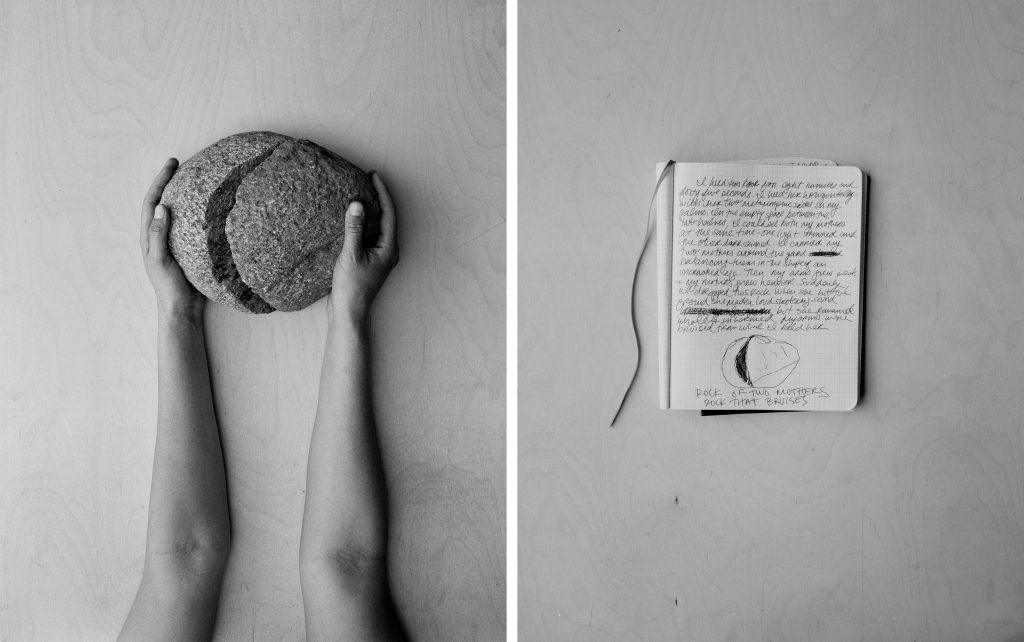 I held him rock for eight minutes and
forty five seconds. I held her horizontally
with her two metamorphic sides on my
palms. In the empty space between the
two halves, I could see both my mothers
at the same time - one light skinned and
the other dark skinned. I carried my
two mothers around the yard
balancing them in the shape of an
uncracked egg. Then my arms grew weak
+ my mothers grew heavier. Suddenly,
I dropped this rock. When she hit the
ground she made a loud shattering sound
but she remained
wholly unharmed. My arms were
bruised from where I held her.
ROCK OF TWO MOTHERS
ROCK THAT BRUISES